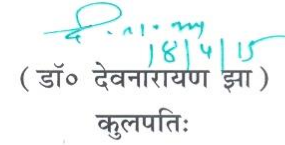 18/4/15
( डॉ० देवनारायण झा )
कुलपतिः